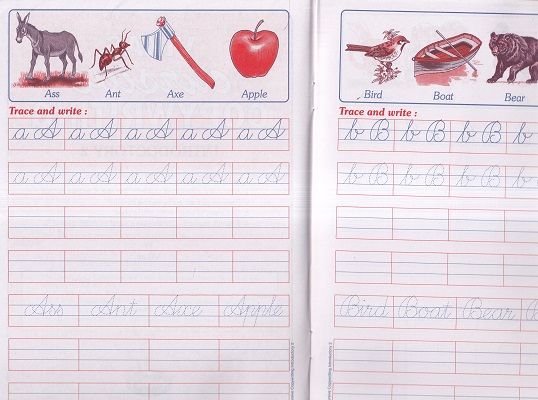 Ass Ant Axe Apple
Trace and write :
a A a A a A a A a A
a A a A a A a A a A
Ass Ant Axe Apple
Bird Boat Bear
Trace and write :
b B b B b B b
b B b B b B b
Bird Boat Bear B